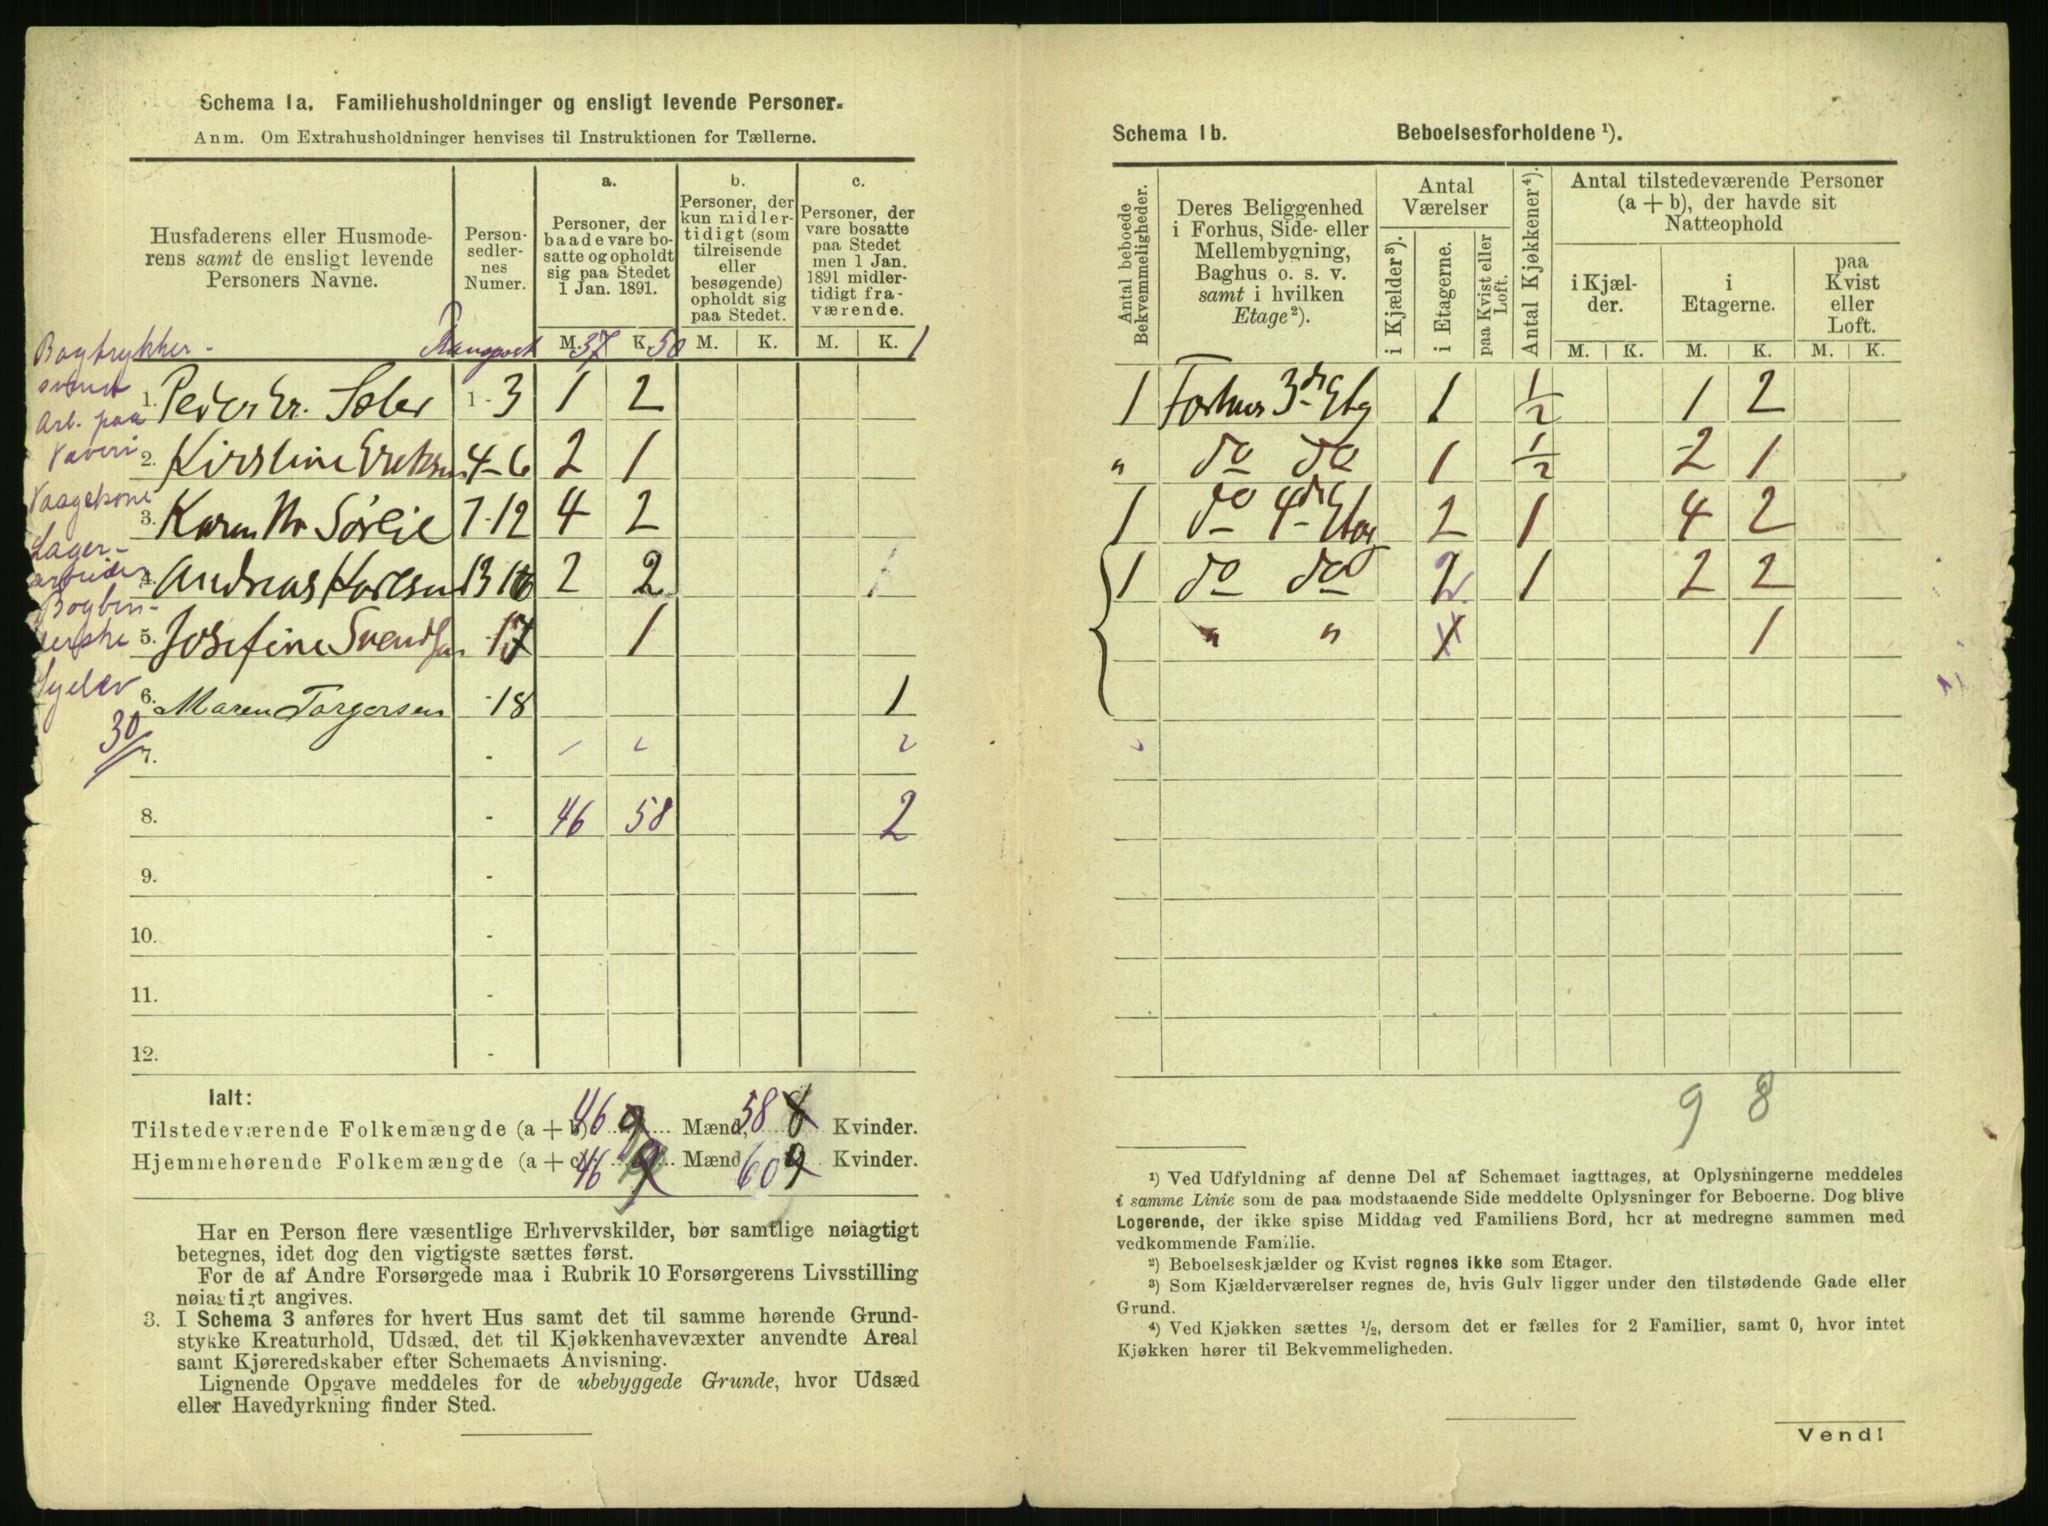 Schema 1a. Familiehusholdninger og ensligt levende Personer.
Anm. Om Extrahusholdninger henvises til Instruktionen for Tællerne.
Husfaderens eller Husmoderens samt de ensligt levende Personers Navne.
Person-sedlernes Numer.
a.
Personer, der baade vare bosatte og opholdt sig paa Stedet 1 Jan. 1891.
b.
Personer, der kun midlertidigt (som tilreisende eller besøgende) opholdt sig paa Stedet.
c.
Personer, der vare bosatte paa Stedet men 1 Jan. 1891 midlertidigt fraværende.
Transport M. 37 K. 50 M. K. M. K. 1
Bogtrykker-
svend
1. Peder Chr. Soler 1-3 1 2
Arb. paa
Væveri
2. Kirstine Eriksen 4-6 2 1
Vaagekone
3. Karen M. Sørlie 7-12 4 2
Lager-
arbeider
4. Andreas Karlsen 13 16 2 2
Bogbin-
derske
5. Josefine Svendsen -17 1
Syelev
6. Maren Torgersen -18 1
30
7. -
8. - 46 58 2
9. -
10. -
11. -
12. -
Ialt:
Tilstedeværende Folkemængde (a + b) 46 9 Mænd, 58 8 Kvinder.
Hjemmehørende Folkemængde (a + c) 46 9 Mænd 60 9 Kvinder.
Har en Person flere væsentlige Erhvervskilder, bør samtlige nøiagtigt
betegnes, idet dog den vigtigste sættes først.
For de af Andre Forsørgede maa i Rubrik 10 Forsørgerens Livsstilling
nøiagtigt angives.
3. I Schema 3 anføres for hvert Hus samt det til samme hørende Grund-
stykke Kreaturhold, Udsæd, det til Kjøkkenhavevæxter anvendte Areal
samt Kjøreredskaber efter Schemaets Anvisning.
Lignende Opgave meddeles for de ubebyggede Grunde, hvor Udsæd
eller Havedyrkning finder Sted.
Schema 1b. Beboelsesforholdene ¹).
Antal beboede Bekvemmeligheder.
Deres Beliggenhed i Forhus, Side- eller Mellembygning, Baghus o. s. v. samt i hvilken Etage²).
Antal Værelser
i Kjælder³).
i Etagerne.
paa Kvist eller Loft.
Antal Kjøkkener⁴).
Antal tilstedeværende Personer (a + b), der havde sit Natteophold
i Kjælder.
i Etagerne.
paa Kvist eller Loft.
M. K. M. K. M. K.
1 Forhus 3die Etg 1 ½ 1 2
" do do 1 ½ 2 1
1 do 4de Etag 2 1 4 2
1 do do 2 1 2 2
" " 1
9 8
¹) Ved Udfyldning af denne Del af Schemaet iagttages, at Oplysningerne meddeles
i samme Linie som de paa modstaaende Side meddelte Oplysninger for Beboerne. Dog blive
Logerende, der ikke spise Middag ved Familiens Bord, her at medregne sammen med
vedkommende Familie.
²) Beboelseskjælder og Kvist regnes ikke som Etager.
³) Som Kjælderværelser regnes de, hvis Gulv ligger under den tilstødende Gade eller
Grund.
⁴) Ved Kjøkken sættes ½, dersom det er fælles for 2 Familier, samt 0, hvor intet
Kjøkken hører til Bekvemmeligheden.
Vend!